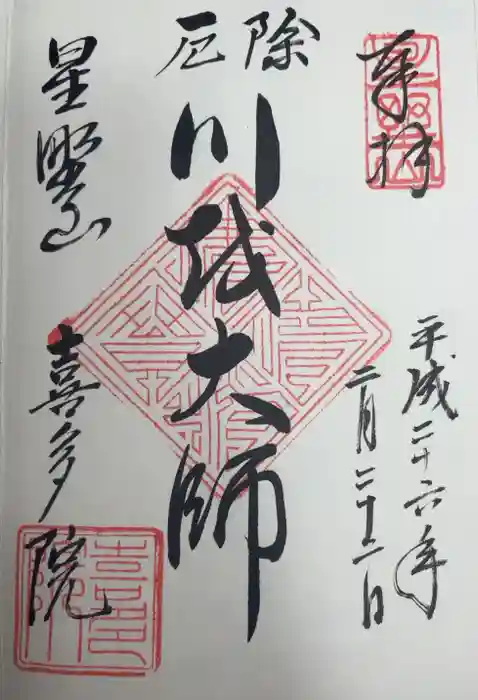 奉拝
平成二十六年
二月二十二日
除厄
川越大師
星野山
喜多院